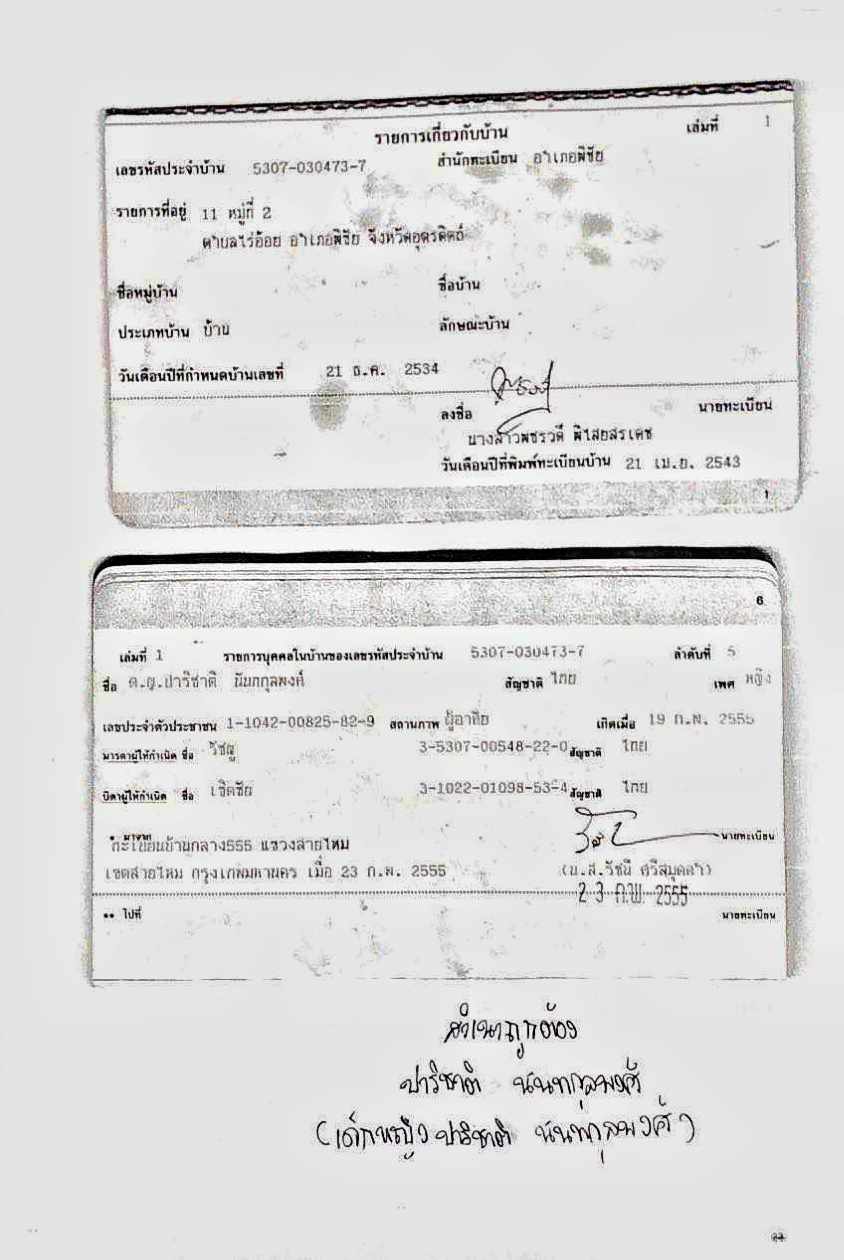 รายการเกี่ยวกับบ้าน เล่มที่ 1
เลขรหัสประจำบ้าน 5307-030473-7 สำนักทะเบียน อำเภอพิชัย
รายการที่อยู่ 11 หมู่ที่ 2
ตำบลไร่อ้อย อำเภอพิชัย จังหวัดอุตรดิตถ์
ชื่อหมู่บ้าน ชื่อบ้าน
ประเภทบ้าน บ้าน ลักษณะบ้าน
วันเดือนปีที่กำหนดบ้านเลขที่ 21 ธ.ค. 2534
ลงชื่อ นายทะเบียน
นางสาวพชรวดี
วันเดือนปีที่พิมพ์ทะเบียนบ้าน 21 เม.ย. 2543
1
6
เล่มที่ 1 รายการบุคคลในบ้านของเลขรหัสประจำบ้าน 5307-030473-7 ลำดับที่ 5
ชื่อ ด.ญ.ปาริชาติ นันทกุลพงศ์ สัญชาติ ไทย เพศ หญิง
เลขประจำตัวประชาชน 1-1042-00825-82-9 สถานภาพ ผู้อาศัย เกิดเมื่อ 19 ก.พ. 2555
มารดาผู้ให้กำเนิด ชื่อ 3-5307-00548-22-0 สัญชาติ ไทย
บิดาผู้ให้กำเนิด ชื่อ เชิดชัย 3-1022-01098-53-4 สัญชาติ ไทย
* มาจาก นายทะเบียน
ทะเบียนบ้านกลาง555 แขวงสายไหม
เขตสายไหม กรุงเทพมหานคร เมื่อ 23 ก.พ. 2555 (น.ส.รัชนี ศรีสมุดคำ)
23 ก.พ. 2555
** ไปที่ นายทะเบียน
สำเนาถูกต้อง
ปาริชาติ นันทกุลพงศ์
(เด็กหญิง ปาริชาติ นันทกุลพงศ์)